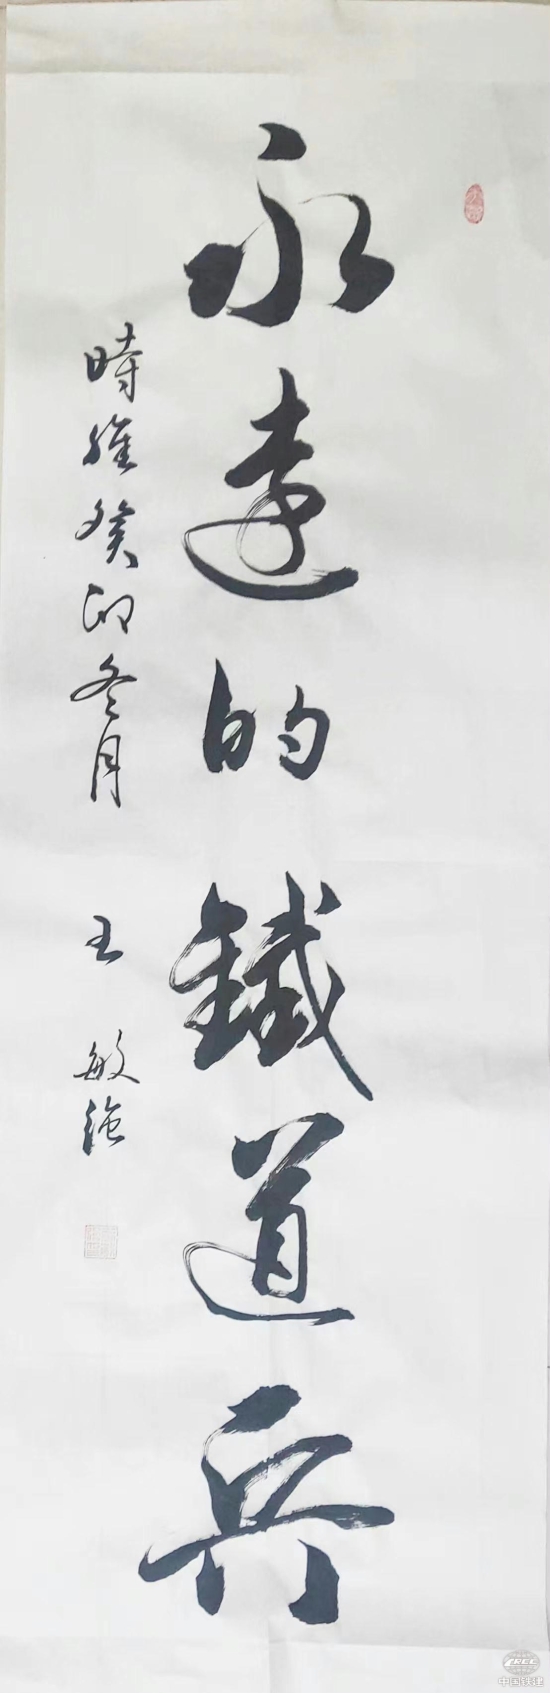 永遠的鐵道兵
時維癸卯冬月
王敏
CRCC
中国铁建